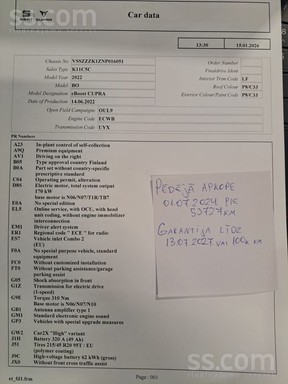 SEAT CUPRA
Car data
13:38 15.01.2026
Chassis No VSSZZZK1ZNP016051
Sales Type K11C5C
Model Year 2022
Model BO
Model Designation eBoost CUPRA
Date of Production 14.06.2022
Open Field Campaigns OUL9
Engine Code ECWB
Transmission Code UYX
Order Number
Fixed/drive Ident
Interior Trim Code LF
Roof Colour PWC31
Exterior Colour/Paint Code PWC31
PR Numbers
A23 In-plant control of self-collection
A9Q Premium equipment
AV1 Driving on the right
B05 Type approval country Finland
B0A Part set without country-specific
prescriptive standard
C04 Operating permit, alteration
D08 Electric motor, total system output
170 kW
base motor is N06/N07/T1R/TB7
E0A No special edition
EL5 Online service, with OCU, with head
unit coding, without engine immobilizer
interconnection
EM1 Driver alert system
ER1 Regional code " ECE " for radio
ES7 Vehicle intel Combo 2
(EU)
F0A No special purpose vehicle, standard
equipment
FC0 Without customized installation
FT0 Without parking assistance/garage
parking assist
G05 Shock absorption in front
G1Z Transmission for electric drive
(1-speed)
G9E Torque 310 Nm
Base motor is N06/N07/N10
GB1 Antenna amplifier type 1
GM1 Standard electric engine sound
GP3 Vehicles with special upgrade measures
GW2 Car2X "High" variant
J1H Battery 320 A (49 Ah)
J51 Tires 215/45 R20 95T / EU
(polymer coating)
J9C High-voltage battery 62 kWh (gross)
JX0 Without front cross traffic assist
PĒDĒJĀ APKOPE
01.07.2024 PIE
53727KM
GARANTIJA LĪDZ
13.07.2027 VAI 100k KM
Page: 001
ss.com
ss.com